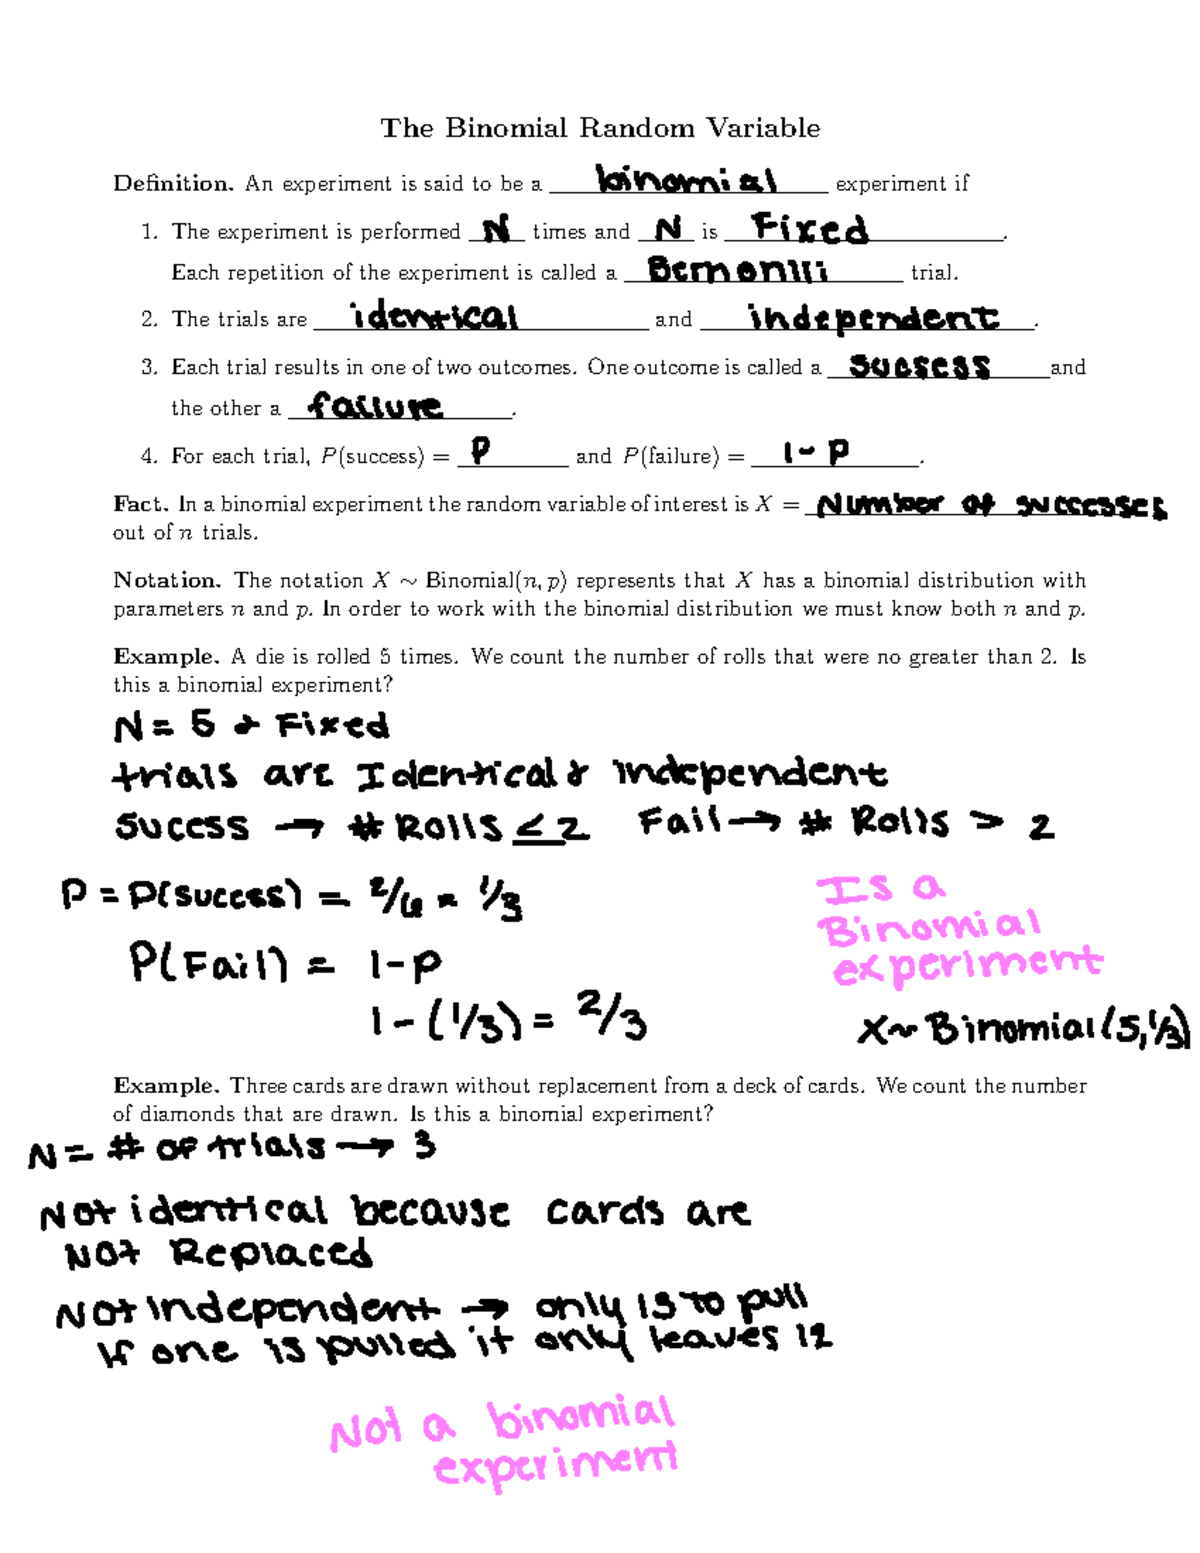 The Binomial Random Variable
Definition. An experiment is said to be a binomial experiment if
1. The experiment is performed N times and N is Fixed.
Each repetition of the experiment is called a Bernoulli trial.
2. The trials are identical and independent.
3. Each trial results in one of two outcomes. One outcome is called a sucsess and
the other a failure.
4. For each trial, P(success) = P and P(failure) = 1-P.
Fact. In a binomial experiment the random variable of interest is X = Number of successes
out of n trials.
Notation. The notation X ~ Binomial(n, p) represents that X has a binomial distribution with
parameters n and p. In order to work with the binomial distribution we must know both n and p.
Example. A die is rolled 5 times. We count the number of rolls that were no greater than 2. Is
this a binomial experiment?
N = 5 & Fixed
trials are Identical & independent
Sucess → # Rolls ≤ 2 Fail → # Rolls > 2
P = P(success) = 2/6 = 1/3
Is a
Binomial
experiment
P(Fail) = 1-P
1-(1/3) = 2/3
X~Binomial(5,1/3)
Example. Three cards are drawn without replacement from a deck of cards. We count the number
of diamonds that are drawn. Is this a binomial experiment?
N = # of trials → 3
Not identical because cards are
Not Replaced
Not Independent → only 13 to pull
If one is pulled it only leaves 12
Not a binomial
experiment